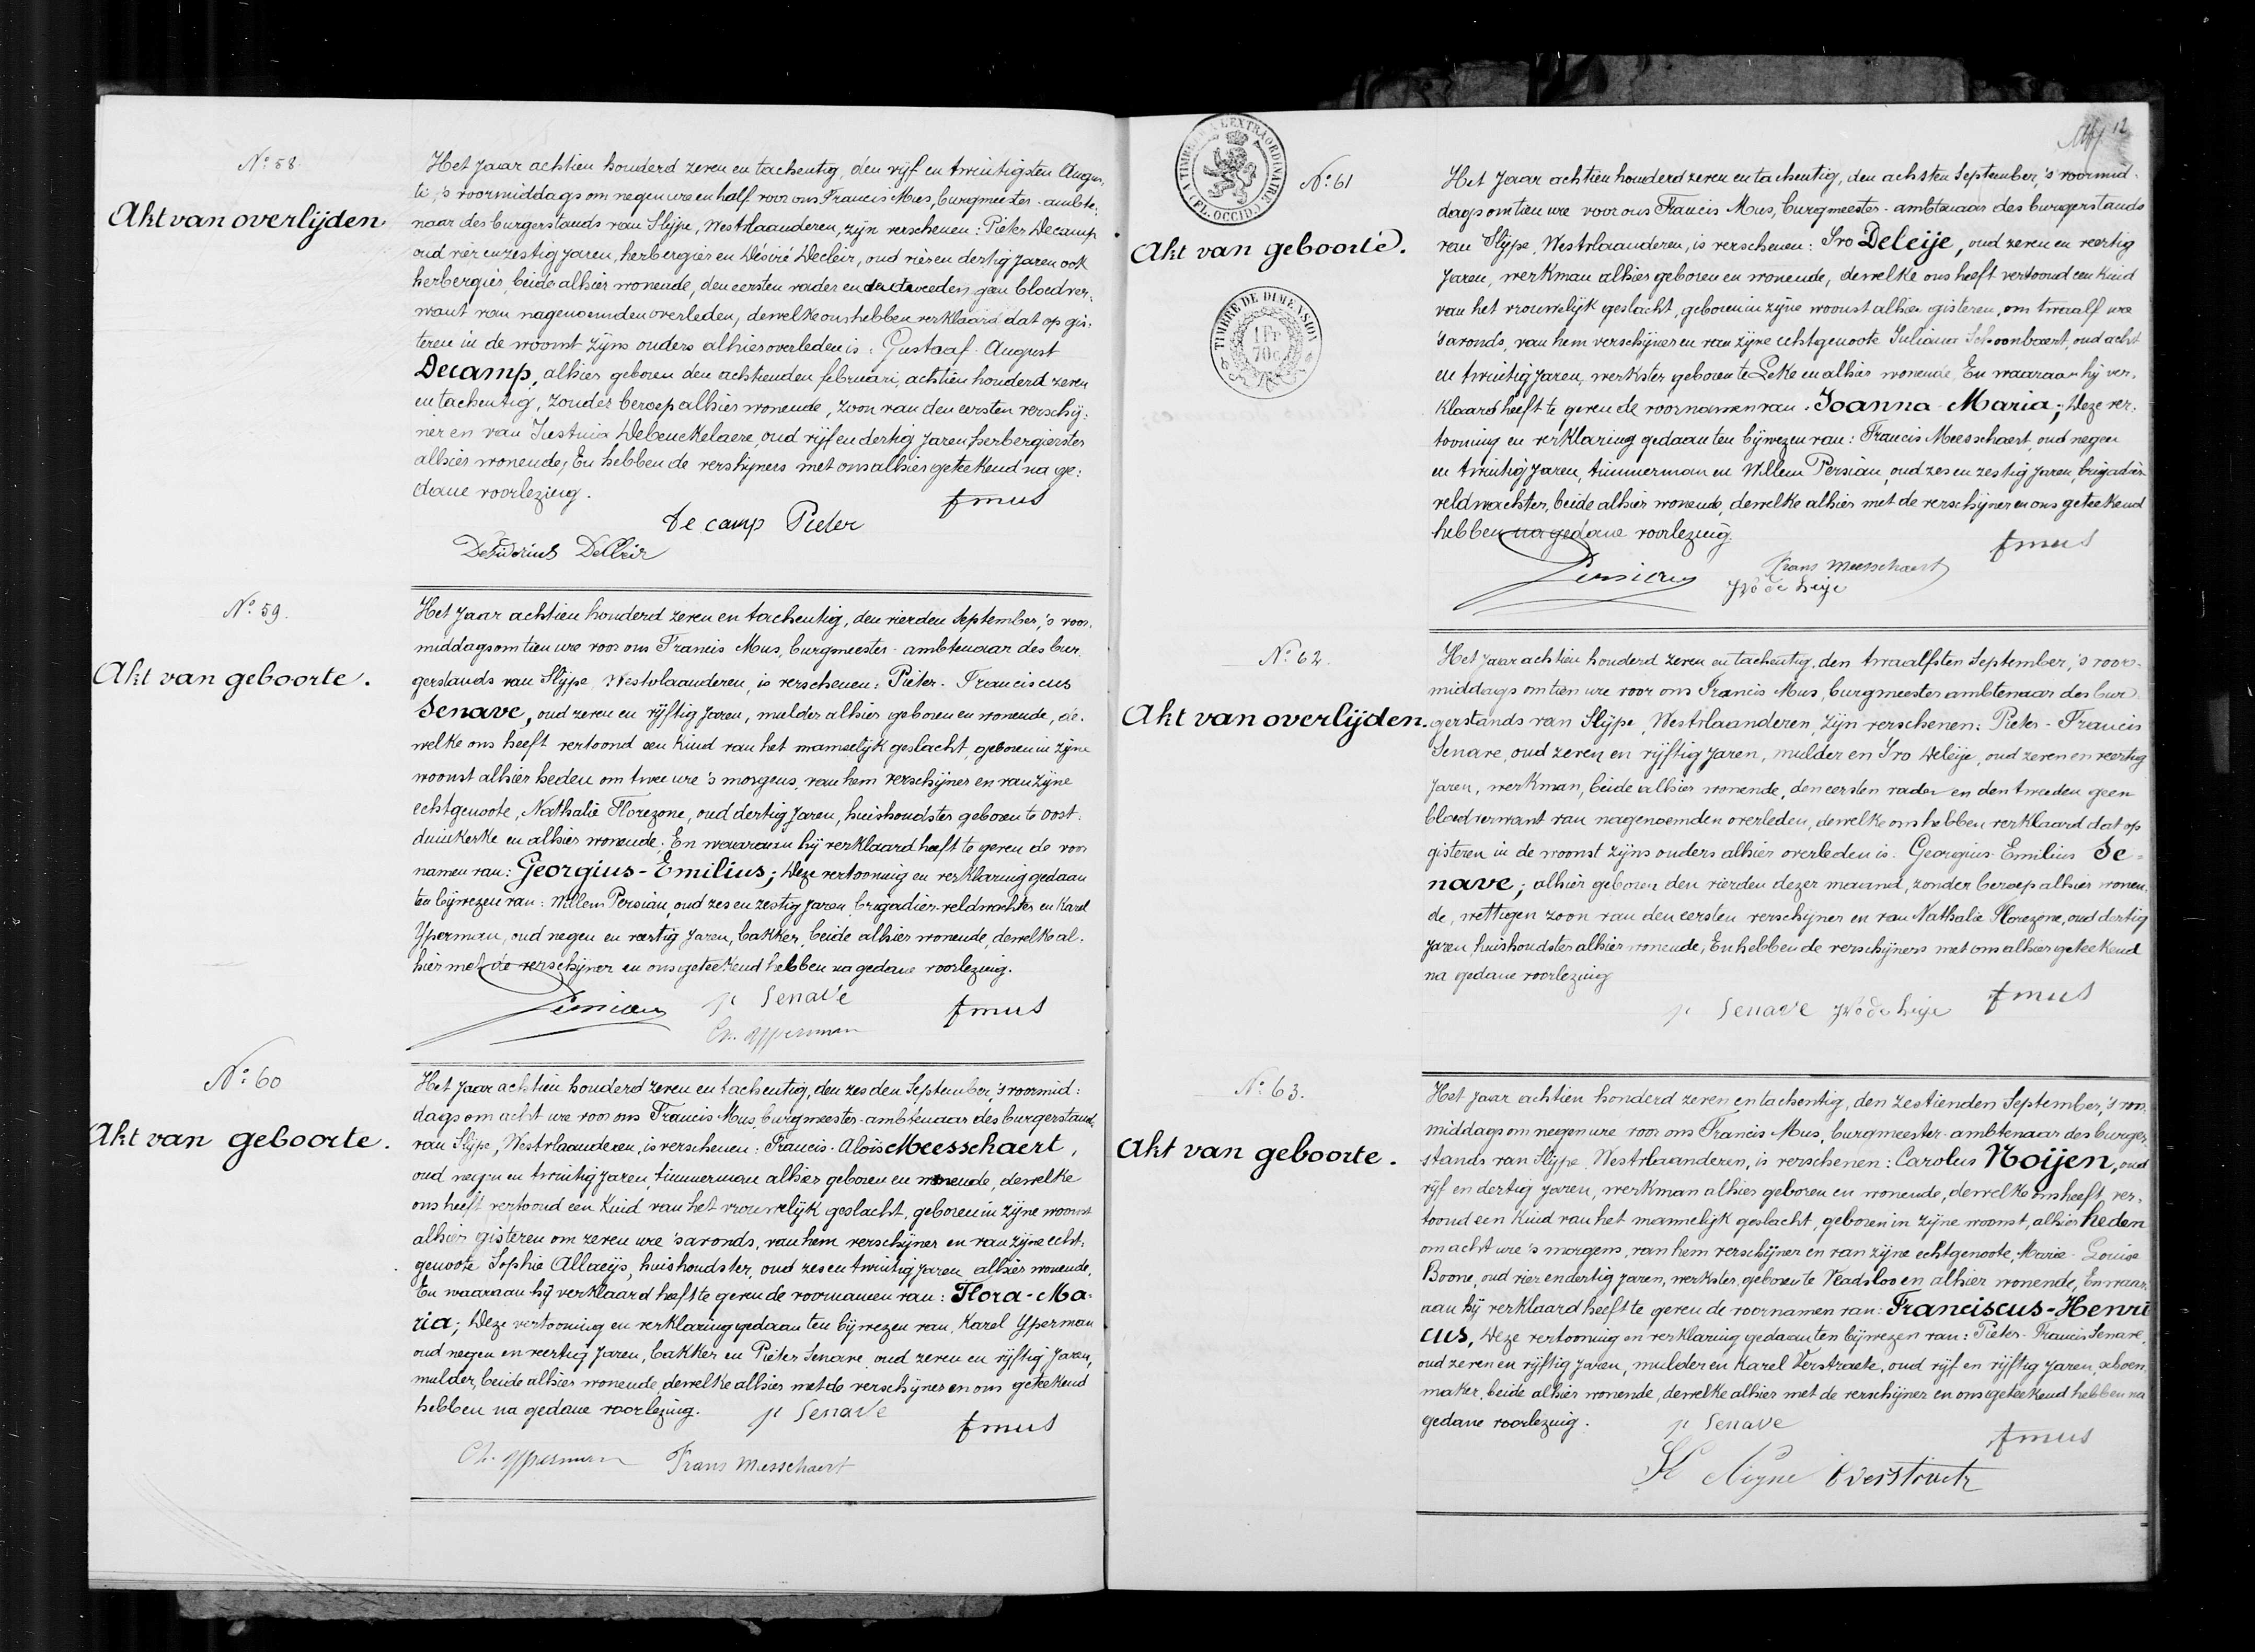 Nº 58.
Akt van overlijden
Het Jaar achtien houderd zeven en tachentig, den vijf en twintigsten Augus-
ti, 's voormiddags om negen ure en half voor ons Francis Mus, burgmeester-ambte-
naar des burgerstands van Slijpe, Westvlaanderen, zijn verschenen: Pieter Decamp
oud vier en zestig jaren, herbergier en Désiré Decleir, oud vier en dertig jaren ook
herbergier, beide alhier wonende, den eersten vader en den tweeden geen bloedver-
want van nagenoemden overleden, dewelke ons hebben verklaard dat op gis-
teren in de woonst zijns ouders alhier overleden is: Gustaaf-August
Decamp, alhier geboren den achtienden februari, achtien houderd zeven
en tachentig, zonder beroep alhier wonende, zoon van den eersten verschij-
ner en van Justina Debeuckelaere, oud vijf en dertig jaren herbergierster
alhier wonende; En hebben de verschijners met ons alhier geteekend na ge-
dane voorlezing.
fmus
De camp Pieter
Desiderius DeCleir
Nº 59.
Akt van geboorte.
Het Jaar achtien houderd zeven en tachentig, den vierden September, 's voor-
middags om tien ure voor ons Francis Mus, burgmeester-ambtenaar des bur-
gerstands van Slijpe Westvlaanderen, is verschenen: Pieter-Franciscus
Senave, oud zeven en vijftig Jaren, mulder alhier geboren en wonende, de-
welke ons heeft vertoond een Kind van het mannelijk geslacht, geboren in zijne
woonst alhier heden om twee ure 's morgens, van hem verschijner en van zijne
echtgenoote, Nathalie Florezone, oud dertig Jaren, huishoudster geboren te Oost-
duinkerke en alhier wonende; En waaraan hij verklaard heeft te geven de voor
namen van: Georgius-Emilius; Deze vertooning en verklaring gedaan
ten bijwezen van: Willem Persian, oud zes en zestig Jaren, brigadier-veldwachter en Karel
Yperman, oud negen en veertig Jaren, bakker, beide alhier wonende, dewelke al-
hier met de verschijner en ons geteekend hebben na gedane voorlezing.
Persian p Senave fmus
Ch. Ypperman
Nº 60
Akt van geboorte.
Het Jaar achtien houderd zeven en tachentig, den zesden September, 's voormid-
dags om acht ure voor ons Francis Mus, burgmeester-ambtenaar des burgerstands
van Slijpe, Westvlaanderen, is verschenen: Francis-Aloïs Meesschaert,
oud negen en twintig Jaren, timmerman alhier geboren en wonende, dewelke
ons heeft vertoond een Kind van het vrouwelijk geslacht, geboren in zijne woonst
alhier gisteren om zeven ure 'savonds, van hem verschijner en van zijne echt-
genoote Sophie Allaeijs, huishoudster, oud zes en twintig Jaren, alhier wonende,
En waaraan hij verklaard heeft te geven de voornamen van: Flora-Ma-
ria; Deze vertooning en verklaring gedaan ten bijwezen van, Karel Yperman
oud negen en veertig Jaren, bakker en Pieter Senave, oud zeven en vijftig Jaren,
mulder, beide alhier wonende, dewelke alhier met de verschijner en ons geteekend
hebben na gedane voorlezing.
p Senave fmus
Ch. Ypperman Frans Meesschaert
12
A TIMBRER A L'EXTRAORDINAIRE
(FL. OCCID.)
TIMBRE DE DIMENSION
1 Fr
70 c
Nº 61
Akt van geboorte.
Het Jaar achtien houderd zeven en tachentig, den achsten September, 's voormid-
dags om tien ure voor ons Francis Mus, burgmeester-ambtenaar des burgerstands
van Slijpe, Westvlaanderen, is verschenen: Ivo Deleije, oud zeven en veertig
Jaren, werkman alhier geboren en wonende, dewelke ons heeft vertoond een Kind
van het vrouwelijk geslacht, geboren in zijne woonst alhier gisteren, om twaalf ure
'savonds, van hem verschijner en van zijne echtgenoote Juliana Schoonbaert, oud acht
en twintig Jaren, werkster geboren te Leke en alhier wonende, En waaraan hij ver-
klaard heeft te geven de voornamen van: Joanna-Maria; Deze ver-
tooning en verklaring gedaan ten bijwezen van: Francis Meesschaert, oud negen
en twintig Jaren, timmerman en Willem Persian, oud zes en zestig Jaren, brigadier
veldwachter, beide alhier wonende, dewelke alhier met de verschijner en ons geteekend
hebben na gedane voorlezing.
fmus
Persian Frans Meesschaert
Ivo de Leije
Nº 62.
Akt van overlijden.
Het Jaar achtien houderd zeven en tachentig, den twaalfsten September, 's voor-
middags om tien ure voor ons Francis Mus, burgmeester ambtenaar des bur
gerstands van Slijpe, Westvlaanderen, zijn verschenen: Pieter-Francis
Senave, oud zeven en vijftig Jaren, mulder en Ivo Deleije, oud zeven en veertig
Jaren, werkman, beide alhier wonende, den eersten vader en den tweeden geen
bloedverwant van nagenoemden overleden, dewelke ons hebben verklaard dat op
gisteren in de woonst zijns ouders alhier overleden is: Georgius-Emilius Se-
nave; alhier geboren den vierden dezer maand, zonder beroep alhier wonen-
de, wettigen zoon van den eersten verschijner en van Nathalie Florezone, oud dertig
Jaren, huishoudster alhier wonende; En hebben de verschijners met ons alhier geteekend
na gedane voorlezing
p Senave Ivo de Leije fmus
Nº 63.
Akt van geboorte.
Het Jaar achtien honderd zeven en tachentig, den zestienden September, 's voor-
middags om negen ure voor ons Francis Mus, burgmeester-ambtenaar des burger-
stands van Slijpe, Westvlaanderen, is verschenen: Carolus Noijen, oud
vijf en dertig Jaren, werkman alhier geboren en wonende, dewelke ons heeft ver-
toond een Kind van het mannelijk geslacht, geboren in zijne woonst, alhier heden
om acht ure 's morgens, van hem verschijner en van zijne echtgenoote, Marie-Louise
Boone, oud vier en dertig Jaren, werkster, geboren te Vladsloo en alhier wonende, En waar-
aan hij verklaard heeft te geven de voornamen van: Franciscus-Henri
cus, Deze vertooning en verklaring gedaan ten bijwezen van: Pieter-Francis Senave,
oud zeven en vijftig Jaren, mulder en Karel Verstraete, oud vijf en vijftig Jaren, schoen-
maker, beide alhier wonende, dewelke alhier met de verschijner en ons geteekend hebben na
gedane voorlezing.
p Senave fmus